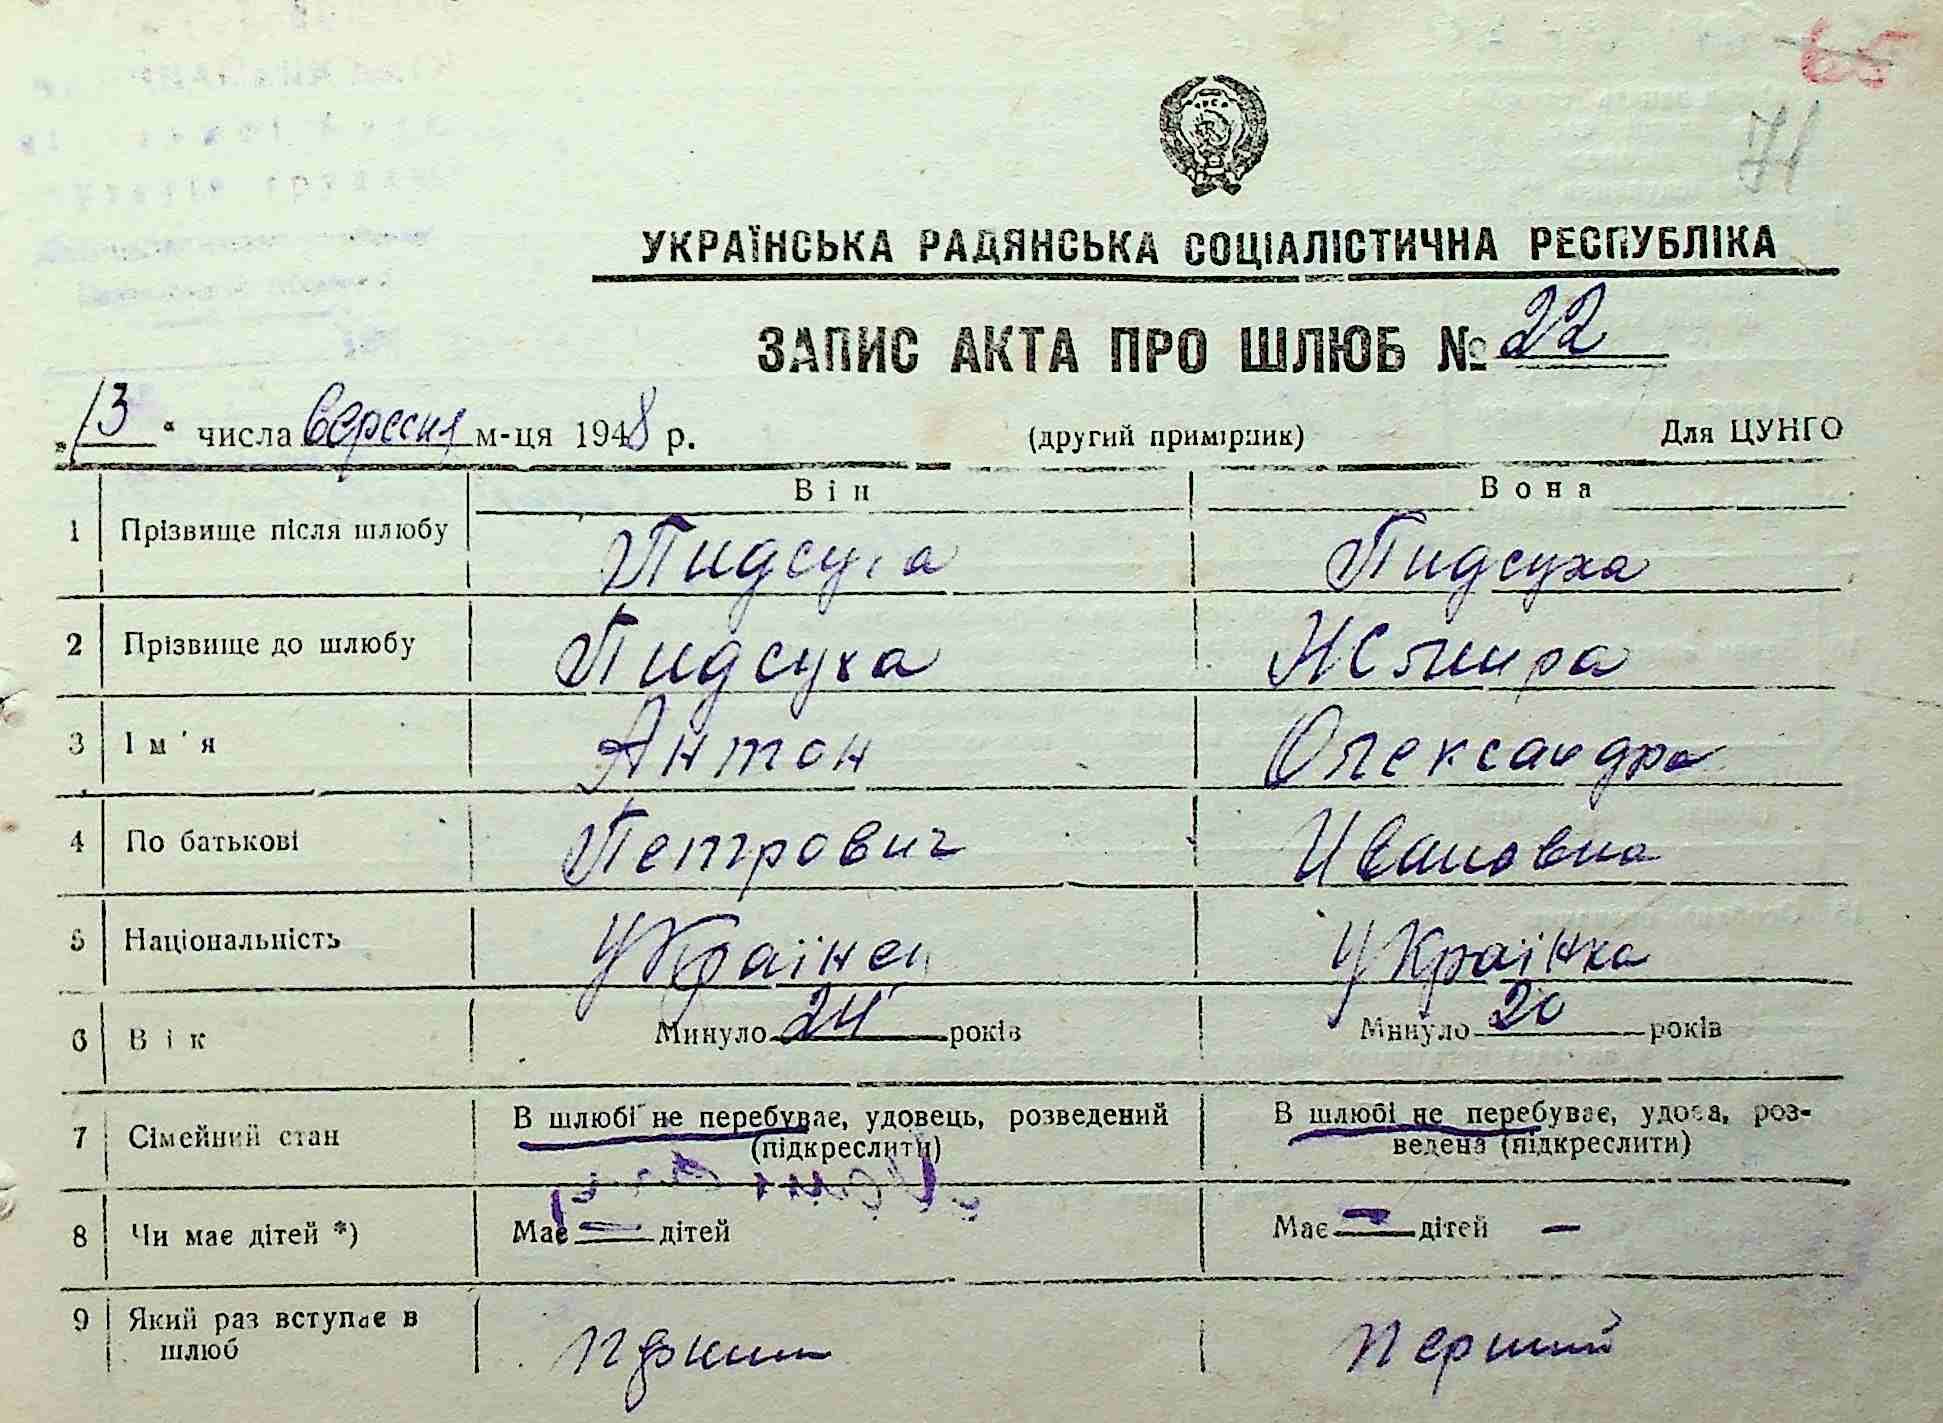 65
71
УКРАЇНСЬКА РАДЯНСЬКА СОЦІАЛІСТИЧНА РЕСПУБЛІКА
ЗАПИС АКТА ПРО ШЛЮБ № 22
„13“ числа вересня м-ця 1948 р. (другий примірник) Для ЦУНГО
Він Вона
1 Прізвище після шлюбу Пидсуха Пидсуха
2 Прізвище до шлюбу Пидсуха
3 Ім'я Антон Олександра
4 По батькові Петрович Ивановна
5 Національність Українец Українка
6 Вік Минуло 24 років Минуло 20 років
7 Сімейний стан В шлюбі не перебуває, удовець, розведений (підкреслити) В шлюбі не перебуває, удова, роз-
ведена (підкреслити)
8 Чи має дітей *) Має — дітей Має — дітей —
9 Який раз вступає в шлюб перший